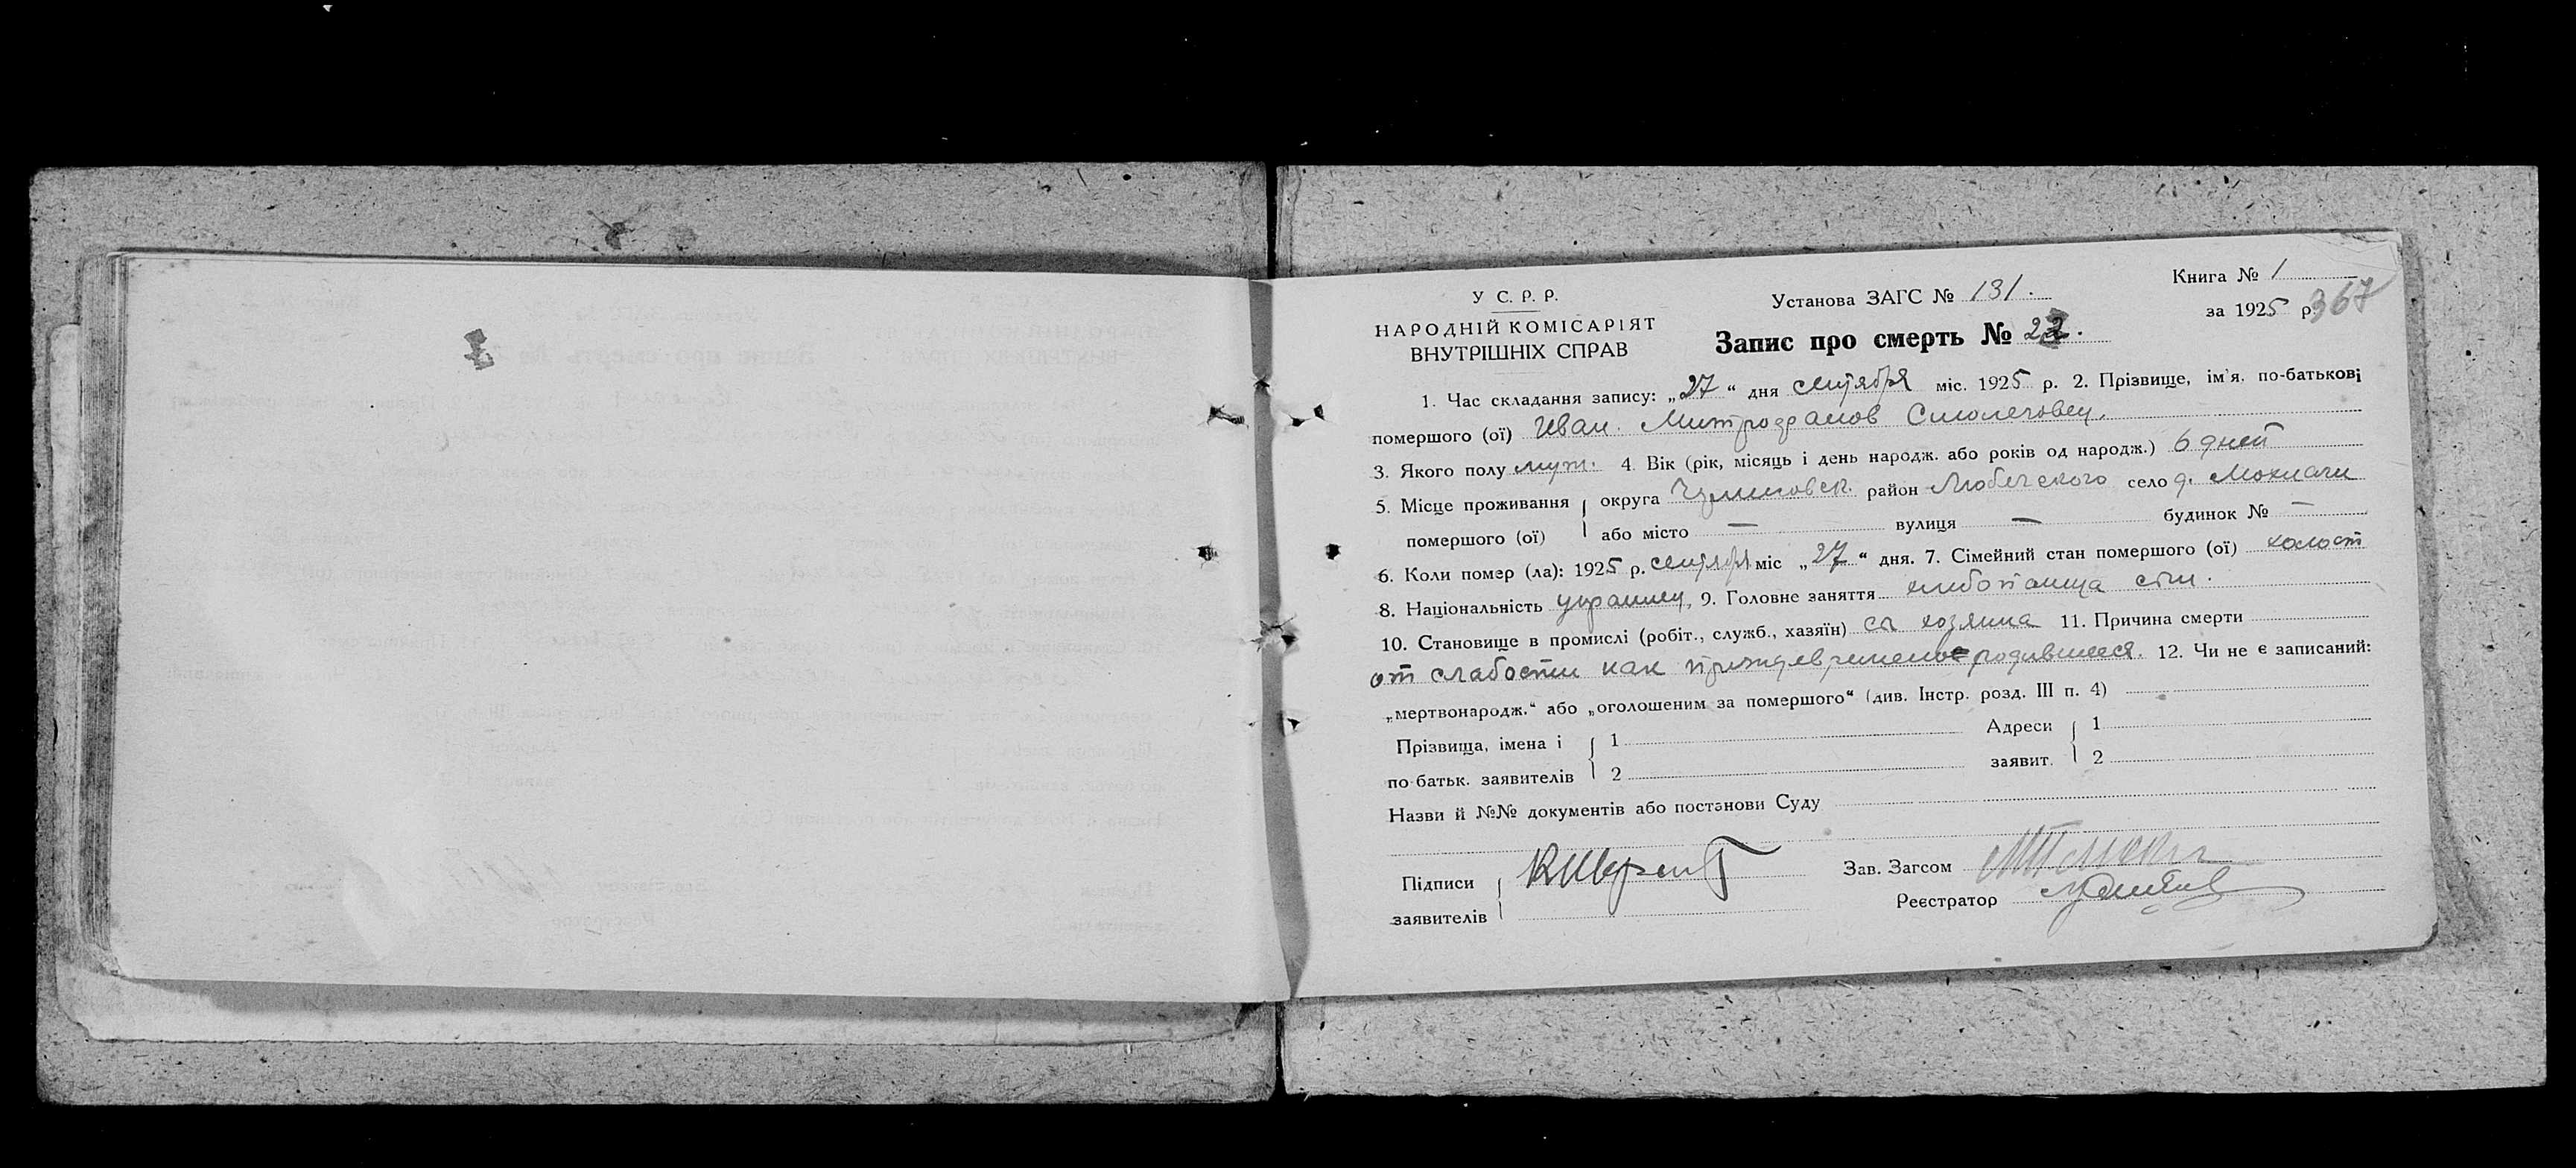 У С. Р. Р.
НАРОДНІЙ КОМІСАРІЯТ
ВНУТРІШНІХ СПРАВ
Установа ЗАГС № 131.
Запис про смерть № 22.
Книга № 1
за 1925 р. 367
1. Час складання запису: „27“ дня сентября міс. 1925 р. 2. Прізвище, ім'я, по-батькові
помершого (ої) Иван. Митрофанов Смолеговец.
3. Якого полу муж. 4. Вік (рік, місяць і день народж. або років од народж.) 6 дней
5. Місце проживання округа район Любечского село д. Мохначи
помершого (ої) або місто — вулиця — будинок № —
6. Коли помер (ла): 1925 р. сентября міс „27“ дня. 7. Сімейний стан помершого (ої) холост
8. Національність украинец, 9. Головне заняття хлебопашца сын.
10. Становище в промислі (робіт., служб., хазяїн) сы хозяина 11. Причина смерти
от слабости как преждевременно родившееся. 12. Чи не є записаний:
„мертвонародж.“ або „оголошеним за помершого“ (див. Інстр. розд. III п. 4)
Прізвища, імена і 1 Адреси 1
по-батьк. заявителів 2 заявит. 2
Назви й №№ документів або постанови Суду
Підписи Зав. Загсом
заявителів Реєстратор